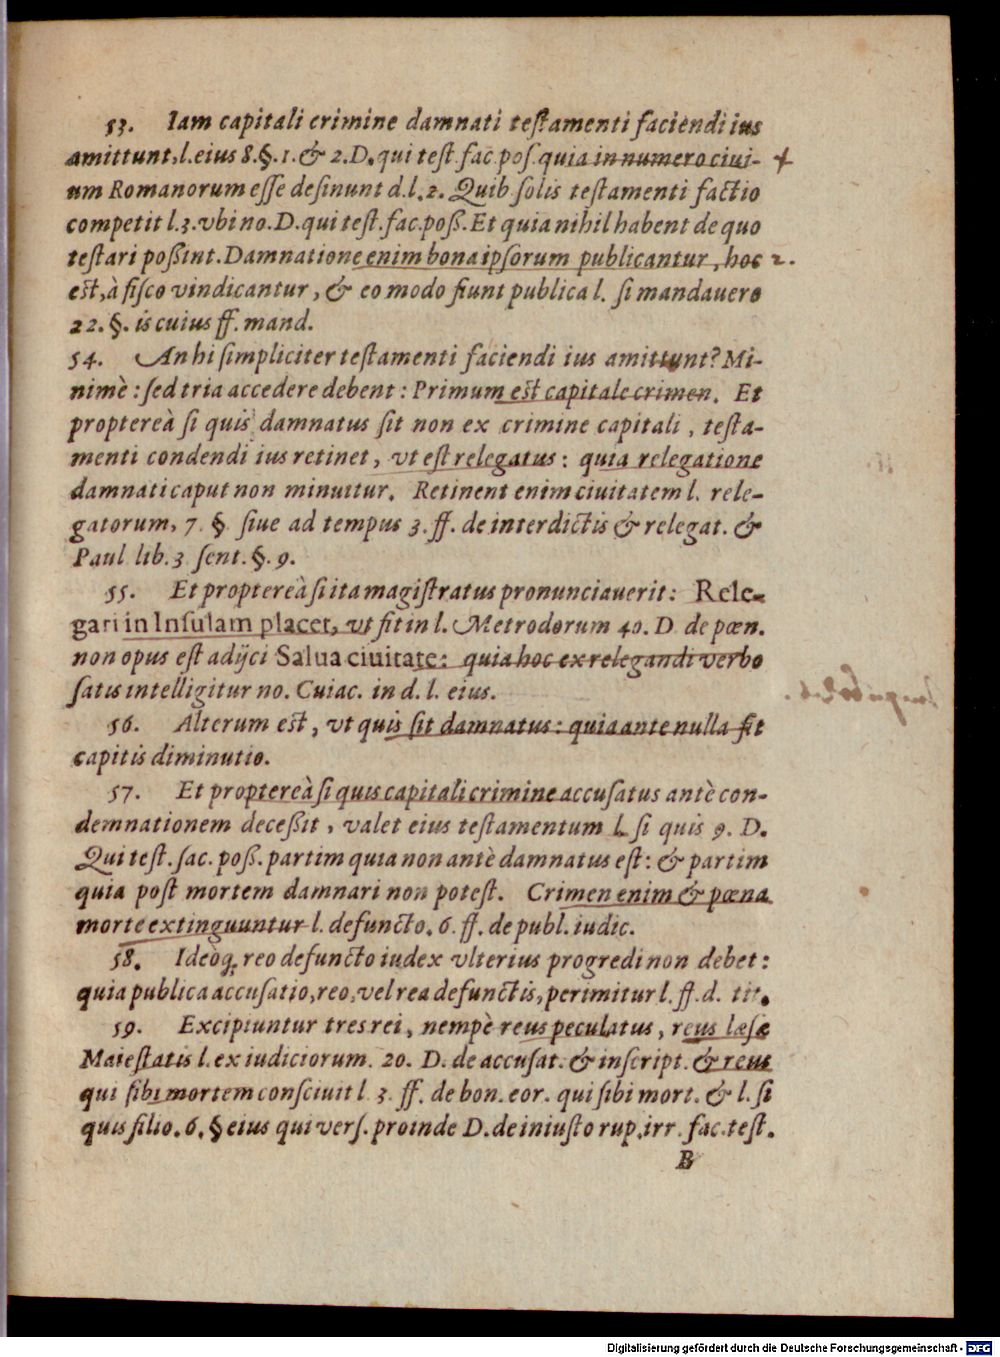 53. Iam capitali crimine damnati teſtamenti faciendi ius
amittunt, l. eius 8. §. 1. & 2. D. qui teſt. fac. poſ. quia in numero ciui-
um Romanorum eſſe deſinunt d. l. 2. Quib. ſolis teſtamenti factio
competit l. 3. vbi no. D. qui teſt. fac. poß. Et quia nihil habent de quo
teſtari poßint. Damnatione enim bona ipſorum publicantur, hoc 2.
eſt, à fiſco vindicantur, & eo modo fiunt publica l. ſi mandauero
22. §. is cuius ff. mand.
54. An hi ſimpliciter teſtamenti faciendi ius amittunt? Mi-
nimè: ſed tria accedere debent: Primum eſt capitale crimen. Et
proptereà ſi quis damnatus ſit non ex crimine capitali, teſta-
menti condendi ius retinet, vt eſt relegatus: quia relegatione
damnati caput non minuitur. Retinent enim ciuitatem l. rele-
gatorum, 7. § ſiue ad tempus 3. ff. de interdictis & relegat. &
Paul lib. 3 ſent. §. 9.
55. Et proptereà ſi ita magiſtratus pronunciauerit: Rele-
gari in Inſulam placet, vt fit in l. Metrodorum 40. D. de pœn.
non opus eſt adijci Salua ciuitate: quia hoc ex relegandi verbo
ſatis intelligitur no. Cuiac. in d. l. eius.
56. Alterum eſt, vt quis ſit damnatus: quia ante nulla fit
capitis diminutio.
57. Et proptereà ſi quis capitali crimine accuſatus antè con-
demnationem deceßit, valet eius teſtamentum l. ſi quis 9. D.
Qui teſt. fac. poß. partim quia non antè damnatus eſt: & partim
quia poſt mortem damnari non poteſt. Crimen enim & pœna
morte extinguuntur l. defuncto. 6. ff. de publ. iudic.
58. Ideòq́; reo defuncto iudex vlterius progredi non debet:
quia publica accuſatio, reo, vel rea defunctis, perimitur l. ff. d. tit.
59. Excipiuntur tres rei, nempè reus peculatus, reus læſæ
Maieſtatis l. ex iudiciorum. 20. D. de accuſat. & inſcript. & reus
qui ſibi mortem conſciuit l. 3. ff. de bon. eor. qui ſibi mort. & l. ſi
quis filio. 6. § eius qui verſ. proinde D. de iniuſto rup. irr. fac. teſt.
B
Digitalisierung gefördert durch die Deutsche Forschungsgemeinschaft - DFG